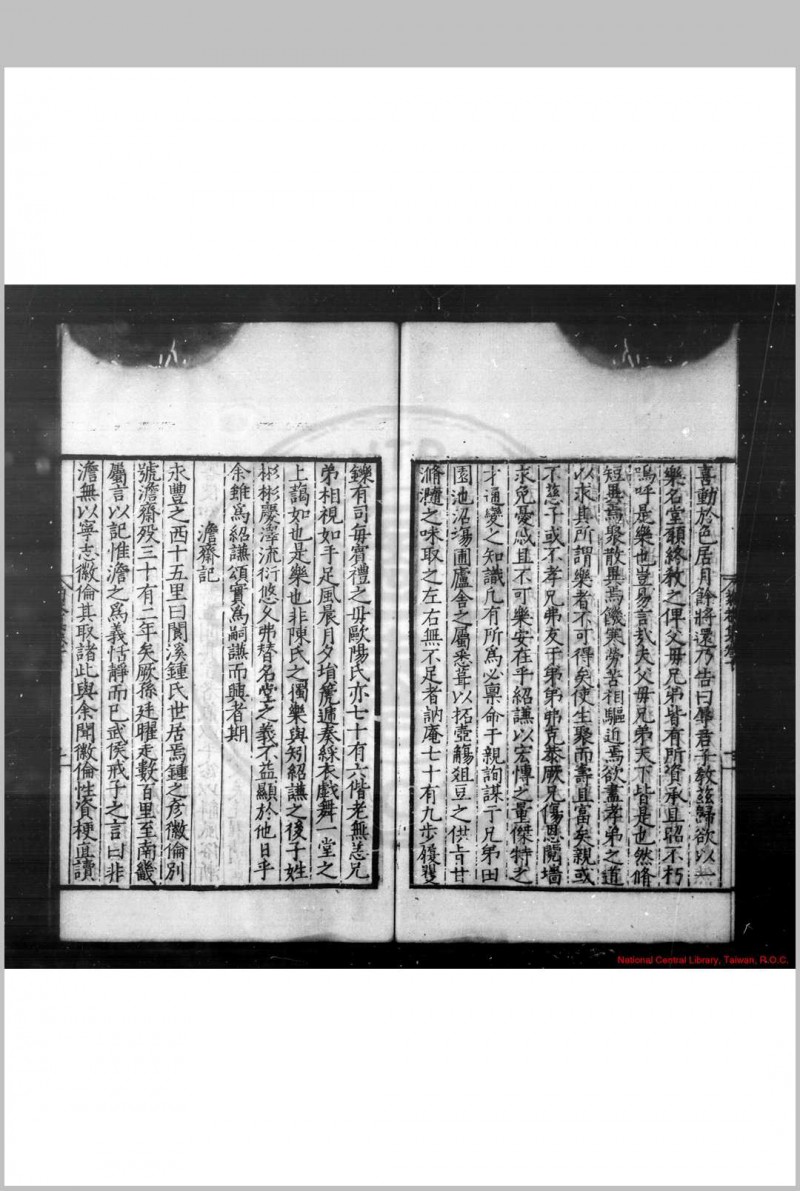 喜動於色居月餘將還乃告曰辱君子教茲歸欲以一
樂名堂願終教之俾父母兄弟皆有所資承且昭不朽
嗚呼是樂也豈易言哉夫父母兄弟天下皆是也然脩
短異焉聚散異焉饑寒勞苦相驅迫焉欲盡孝弟之道
以求其所謂樂者不可得矣使生聚而壽且富矣親或
不慈子或不孝兄弗友于弟弟弗克恭厥兄傷恩鬩墻
求免憂慼且不可樂安在乎紹謙以宏愽之量傑特之
才通變之知識凢有所為必禀命于親詢謀于兄弟田
園池沼塲圃廬舍之屬悉葺以拓壺觴俎豆之供㫖甘
滫瀡之味取之左右無不足者訥庵七十有九步履矍
鑠有司每賓禮之母歐陽氏亦七十有六偕老無恙兄
弟相視如手足風晨月夕塤篪逓奏綵衣戲舞一堂之
上藹如也是樂也非陳氏之獨樂與矧紹謙之後子姓
彬彬慶澤流衍悠久弗替名堂之義不益顯於他日乎
余雖為紹謙頌實為嗣謙而興者期
澹齋記
永豐之西十五里曰闤溪鍾氏世居焉鍾之彦徽倫别
號澹齋殁三十有二年矣厥孫廷曜走數百里至南畿
屬言以記惟澹之為義恬靜而已武侯戒子之言曰非
澹無以寧志徽倫其取諸此與余聞徽倫性資梗直讀
National Central Library, Taiwan, R.O.C.